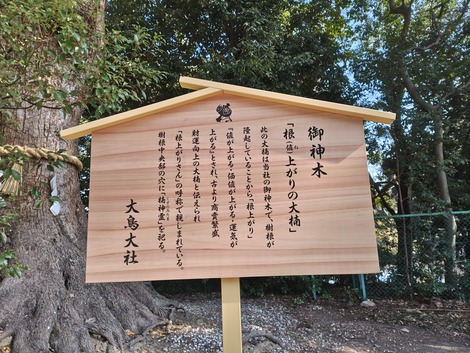 御神木
「根(値)上がりの大楠」
此の大楠は当社の御神木で、樹根が
隆起していることから、「根上がり」
「値が上がる・価値が上がる・運気が
上がる」とされ、古より商売繁盛
財運向上の大楠と伝えられ
「根上がりさん」の呼称で親しまれている。
樹根中央部の穴に「楠神霊」を祀る。
大鳥大社